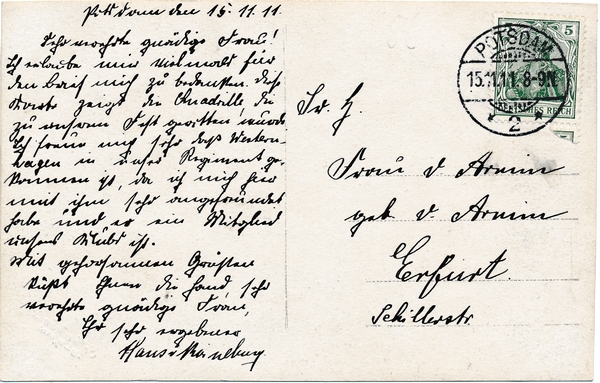 Potsdam den 15.11.11.
Sehr verehrte gnädige Frau!
Ich erlaube mir vielmals für
den Brief mich zu bedanken. Diese
Karte zeigt die Quadrille die
zu unserem Fest geritten wurde
Ich freue mich sehr daß
in unser Regiment ge-
kommen ist, da ich mich hier
mit ihm sehr angefreundet
habe und er ein Mitglied
unsers Klubs ist.
Mit gehorsamen Grüßen
küßt Ihnen die Hand, sehr
verehrte gnädige Frau,
Ihr sehr ergebener
Hans
POTSDAM
15.11.11. 8-9N.
* 2 *
5
HES REICH
Frau v Arnim
geb v Arnim
Erfurt.
Schillerstr.